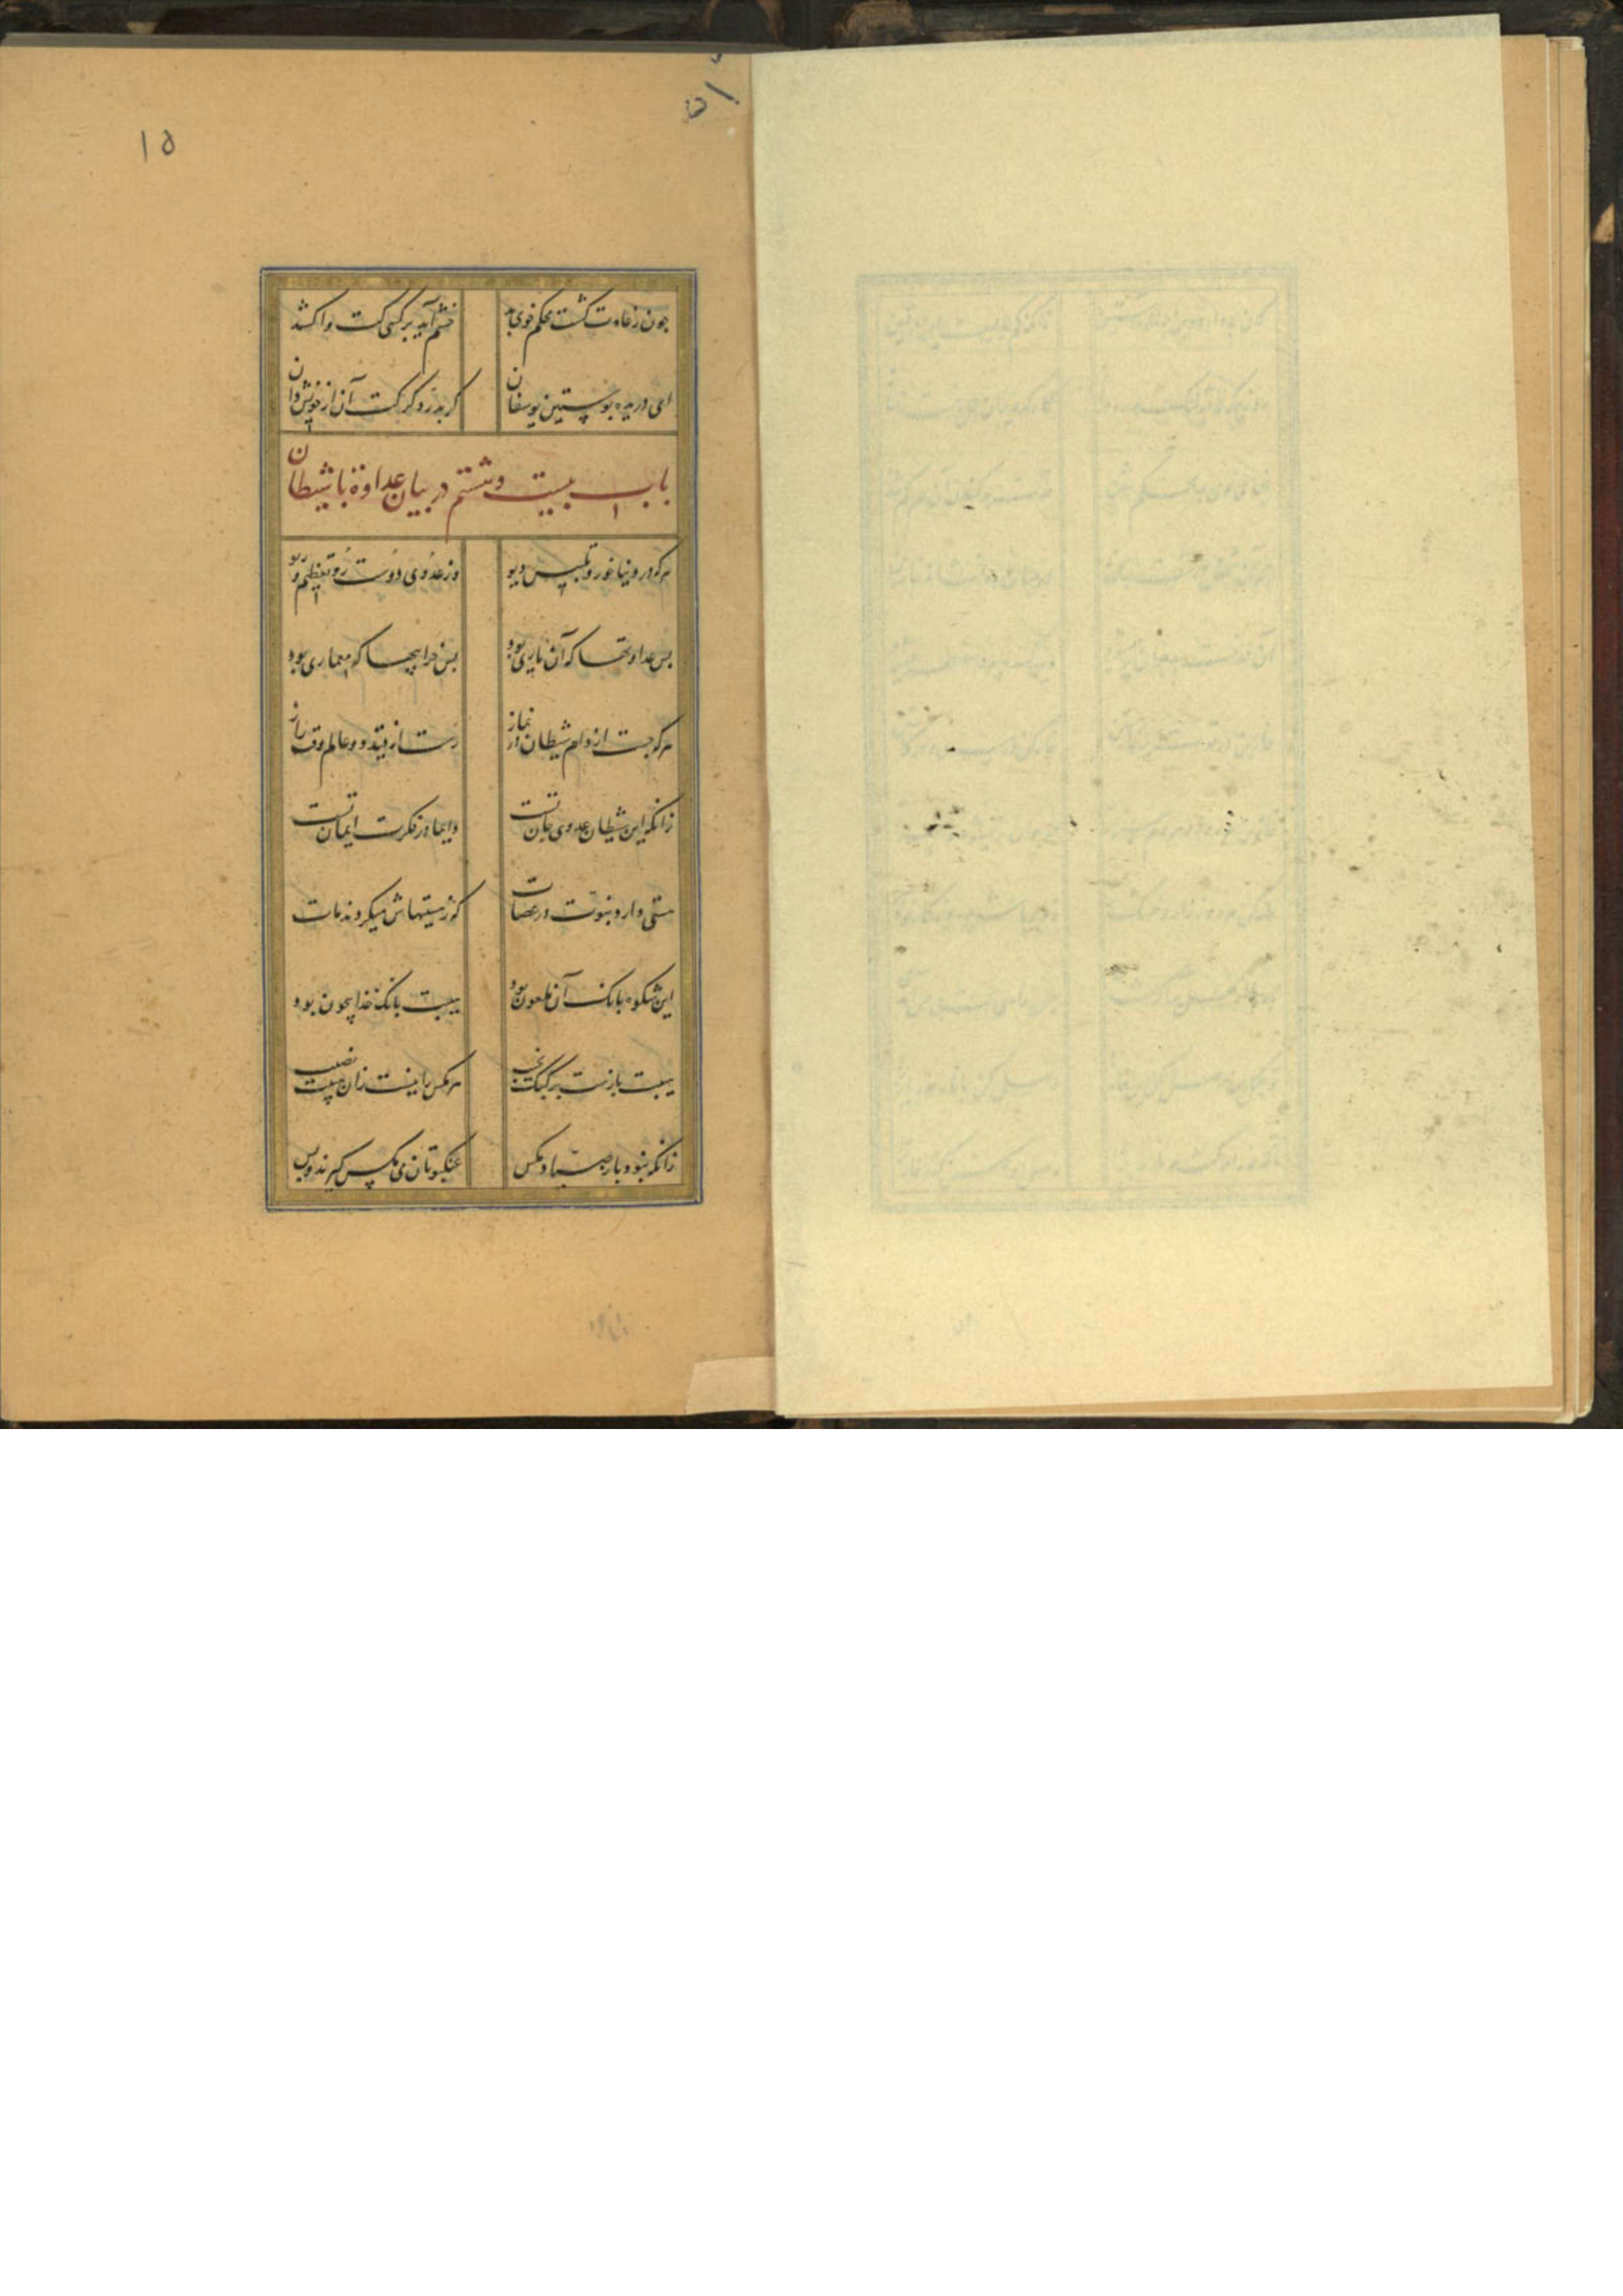 ۱۵
چون ز عادت گشت محکم خوی بد خشم آید بر کسی کت واکشد
ای دریده پوستین یوسفان گر بدرد گرگت آن از خویش دان
باب بیست و ششم در بیان عداوة با شیطان
هرکه در دنیا خورد تلبیس دیو وز عدوی دوست رو تعظیم و ریو
بس عداوتها که آن یاری بود بس خرابیها که معماری بود
هرکه جست از دام شیطان در نماز رست از قید دو عالم وقت راز
زانکه این شیطان عدوی جان تست دایما در فکرت ایمان تست
هستیی دارد نبوت در عصات که ز مستیهاش میگردند مات
این شکوه بانک آن ملعون بود هیبت بانک خدا چون بود
هیبت بازست بر کبک نجیب مر مگس را نیست زان هیبت نصیب
زانکه نبود باز صیاد مگس عنکبوتان می مگس گیرند و بس